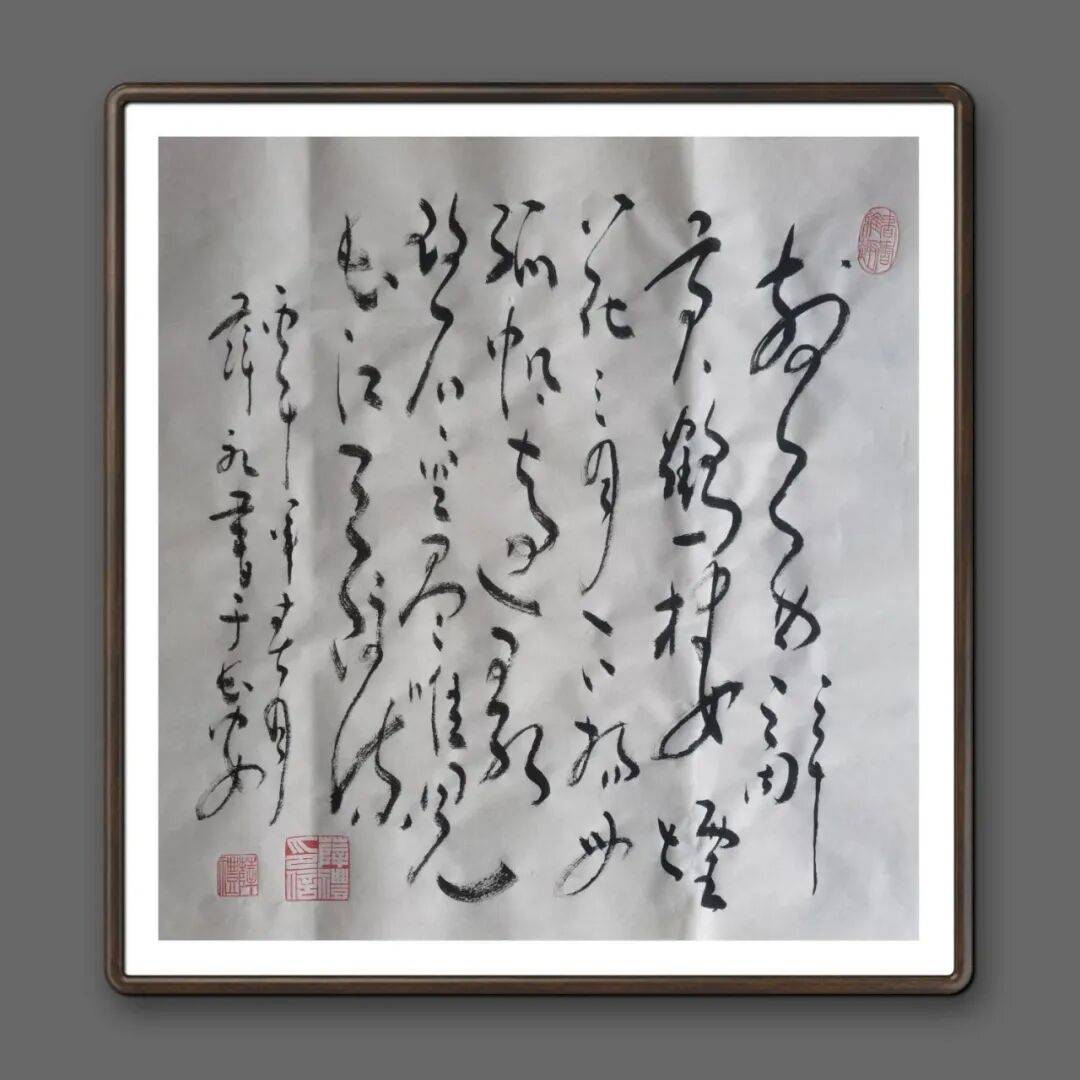 故人西辞
黄鹤楼烟
花三月下扬州
孤帆远影
碧空尽唯见
长江天际流
年春月
薛礼书于长安
薛礼印信